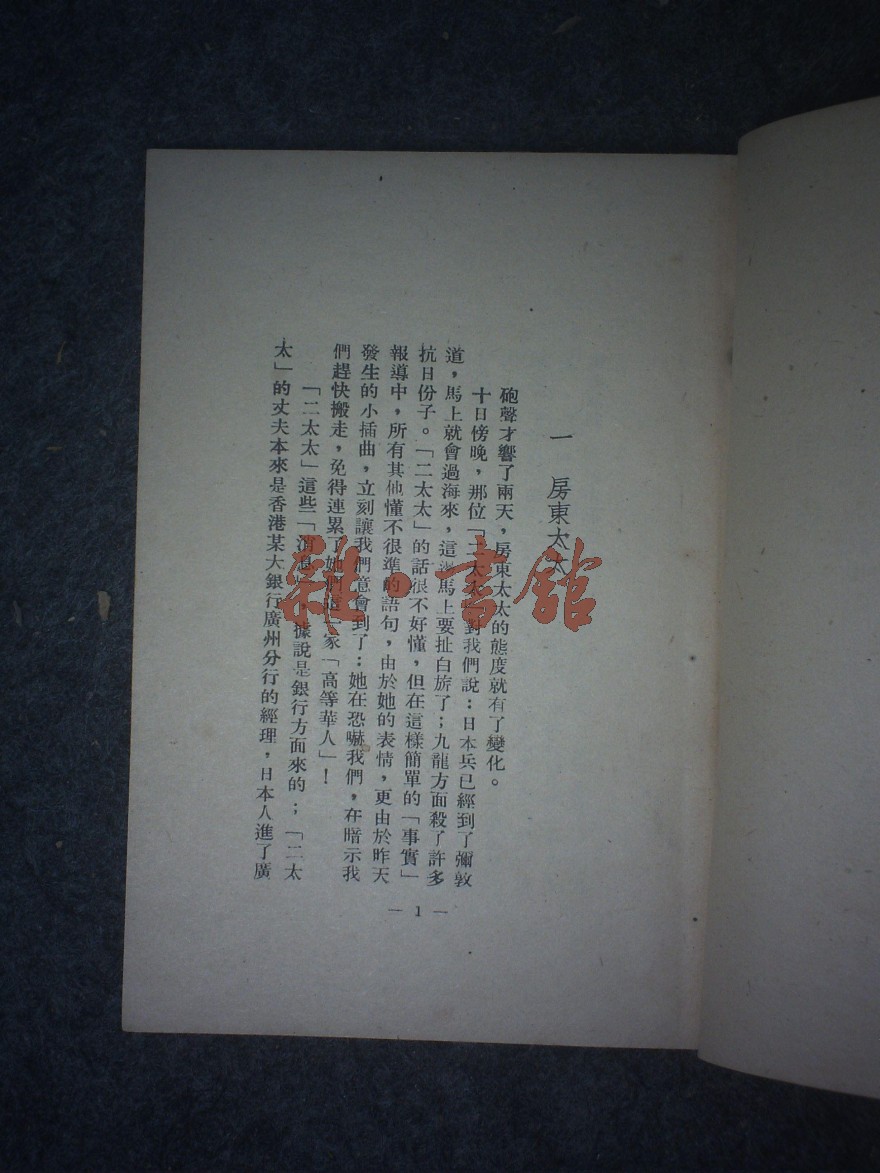 一　房東太太
砲聲才響了兩天，房東太太的態度就有了變化。
十日傍晚，那位「二太太」對我們說：日本兵已經到了彌敦
道，馬上就會過海來，這馬上要扯白旂了；九龍方面殺了許多
抗日份子。「二太太」的話很不好懂，但在這樣簡單的「事實」
報導中，所有其他懂不很準的語句，由於她的表情，更由於昨天
發生的小插曲，立刻讓我們意會到了：她在恐嚇我們，在暗示我
們趕快搬走，免得連累了她們這一家「高等華人」！
「二太太」這些「消息」，據說是銀行方面來的；「二太
太」的丈夫本來是香港某大銀行廣州分行的經理，日本人進了廣
— 1 —
雜·書館